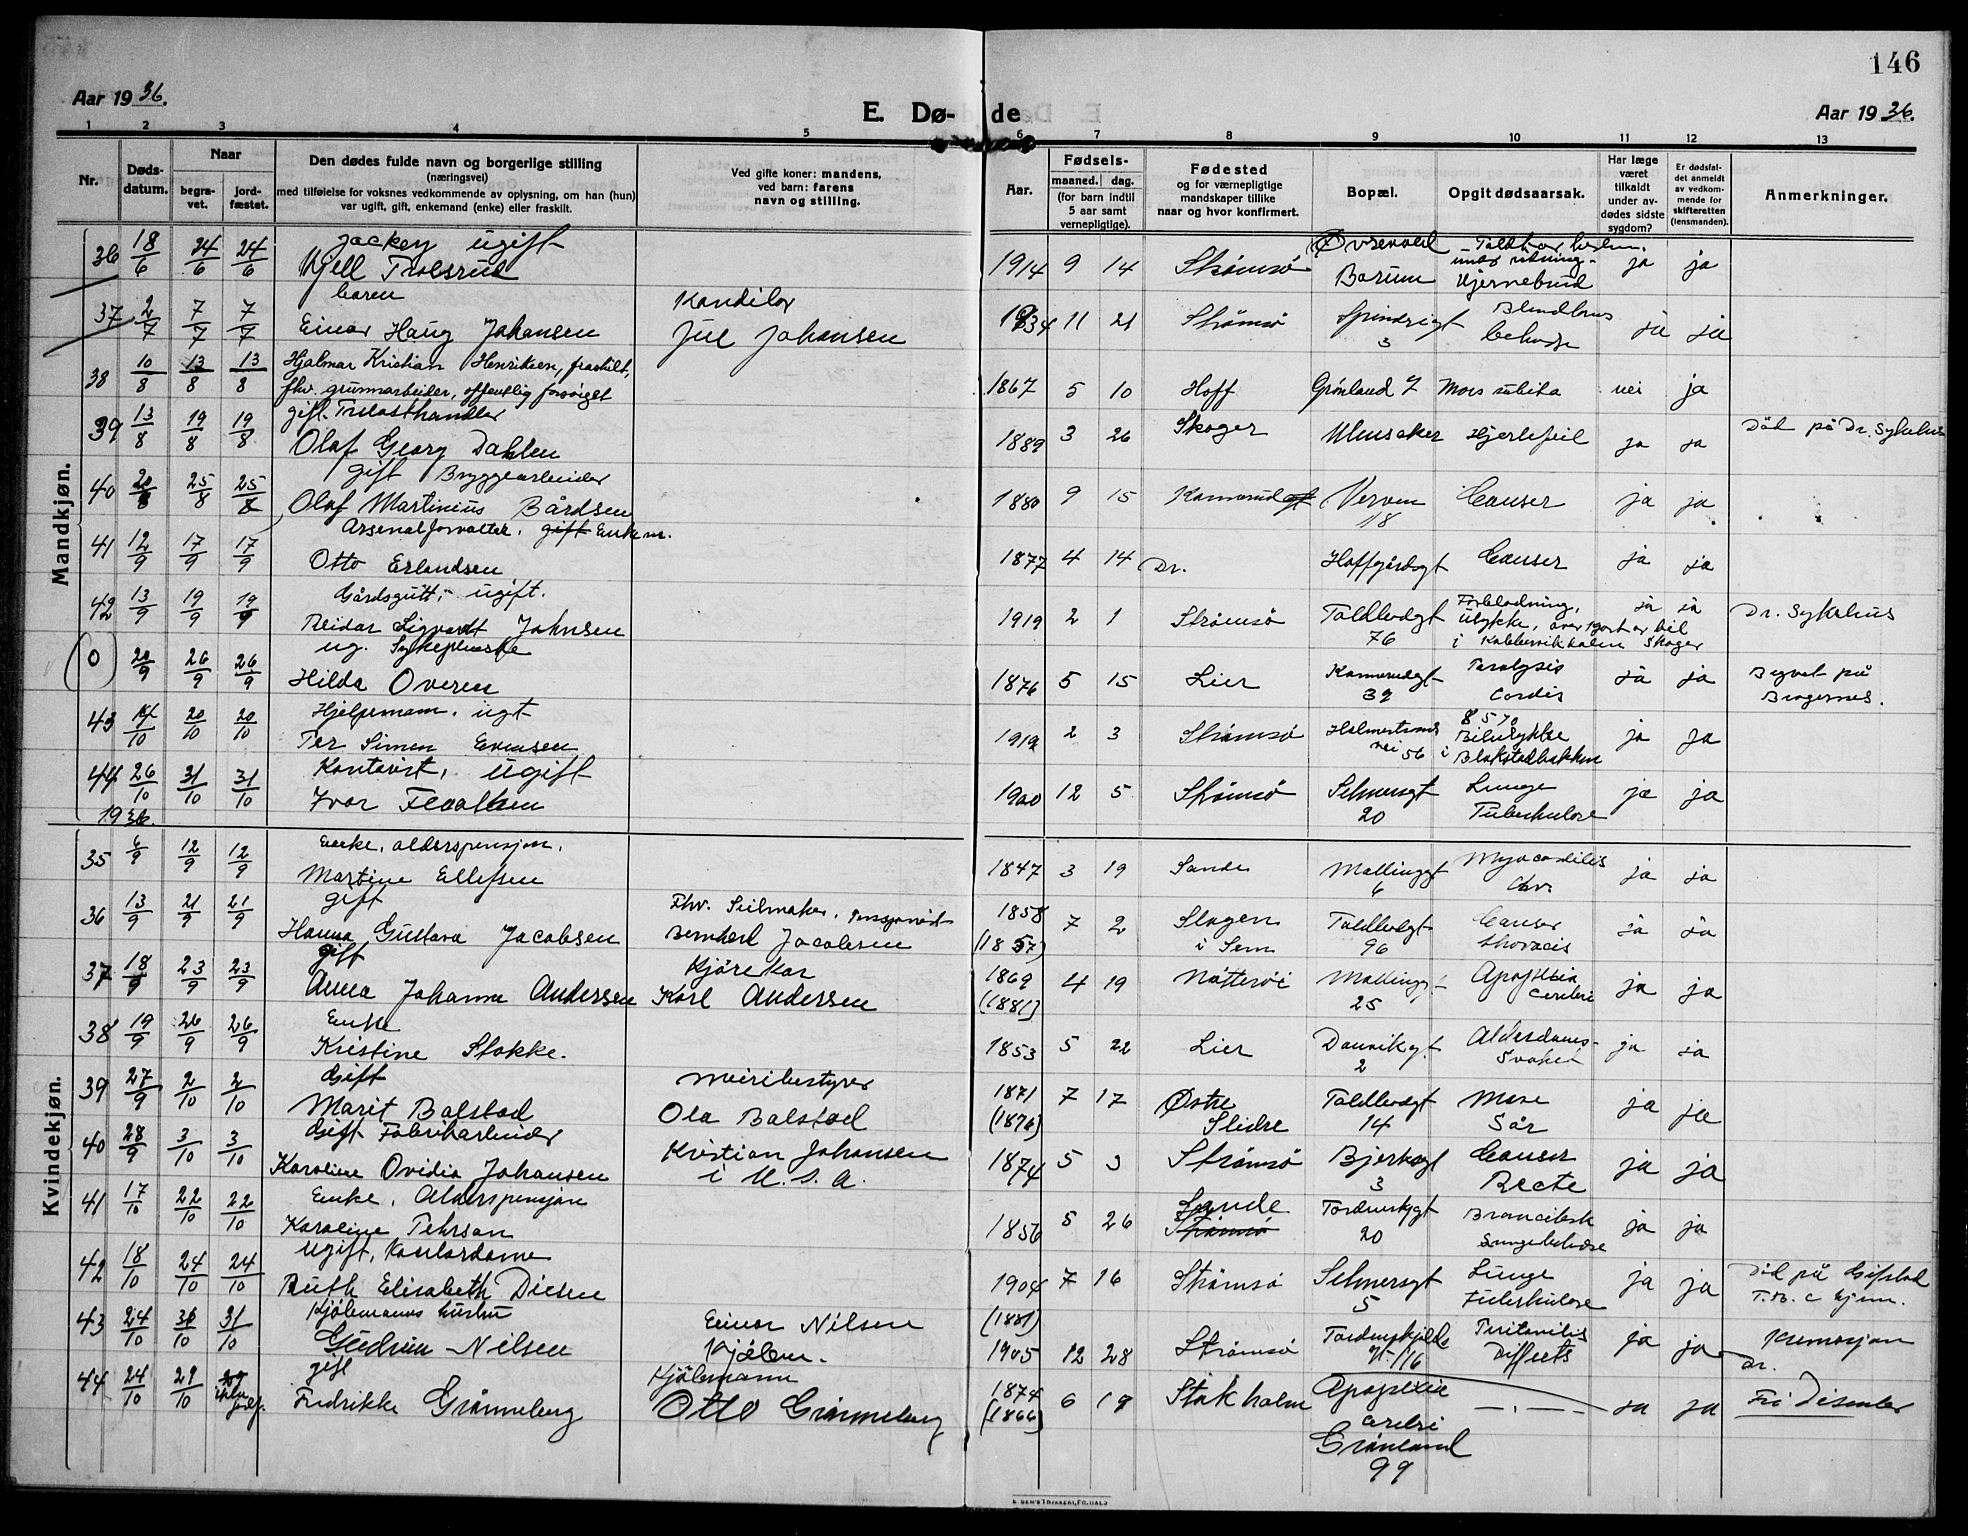 146
Aar 1936.
E. Dø- de
Aar 1936.
1 2 3 4 5 6 7 8 9 10 11 12 13
Nr.
Døds-
datum.
Naar
begra-
vet.
jord-
fæstet.
Den dødes fulde navn og borgerlige stilling
(næringsvei)
med tilføielse for voksnes vedkommende av oplysning, om han (hun)
var ugift, gift, enkemand (enke) eller fraskilt.
Ved gifte koner: mandens,
ved barn: farens
navn og stilling.
Aar.
Fødsels-
maaned. dag.
(for barn indtil
5 aar samt
vernepligtige).
Fødested
og for værnepligtige
mandskaper tillike
naar og hvor konfirmert.
Bopæl.
Opgit dødsaarsak.
Har læge
været
tilkaldt
under av-
dødes sidste
sygdom?
Er dødsfal-
det anmeldt
av vedkom-
mende for
skifteretten
(lensmanden).
Anmerkninger.
Mandkjøn.
36 18/6 24/6 24/6 Jockey ugift
Kjell 1914 9 14 Strømsø Øvrevoll
Bærum ja ja
37 2/7 7/7 7/7 baren
Einar Haug Johansen
Jul Johansen 1934 11 21 Strømsø
3 ja ja
38 10/8 13/8 13/8 Hjalmar Kristian Henriksen, fraskilt,
fhv. grunnarbeider, offentlig forsørget 1867 5 10 Hoff Grønland 7 Mors subita nei ja
39 13/8 19/8 19/8 gift. Trelasthandler
Olaf Georg Dahlen 1889 3 26 Skoger Ullensaker Hjertefeil ja ja Død på Dr. Sykehus
40 20/8 25/8 25/8 gift Bryggearbeider
Olaf Martinius Bårdsen 1880 9 15 Verven
18 Cancer ja ja
41 12/9 17/9 17/9 Arsenalforvalter, gift Enkem.
Otto Erlandsen 1877 4 14 Dr. Hoffgårdsgt Cancer ja ja
42 13/9 19/9 19/9 Gårdsgutt, ugift.
Reidar Sigvardt Johnsen 1919 2 1 Strømsø Toldbodgt
76 Forblødning,
Ulykke, over av bil
i Kobbervikdalen Skoger ja ja Dr. Sykehus
(0) 20/9 26/9 26/9 ug. Sykepleierske
Hilda Overen 1876 5 15 Lier
39 Paralysis
Cordis ja ja Begravet på
Bragernes.
43 14/10 20/10 20/10 Hjelpemann, ugt
Per Simen Evensen 1919 2 3 Strømsø
vei 56 Bilulykke
i Blakstadbakken ja ja
44 26/10 31/10 31/10 Kontorist, ugift
Ivar 1900 12 5 Strømsø Selmersgt
20 Lunge
Tuberkulose ja ja
1936.
Kvindekjøn.
35 6/9 12/9 12/9 Enke, alderspensjon.
Martine Ellefsen 1847 3 19 Sande Møllinggt
6 Myocarditis
chr. ja ja
36 13/9 21/9 21/9 gift
Hanna Gustava Jacobsen Fhv. Seilmaker, Pensjonist
Bernhard Jacobsen 1858
(1857) 7 2 Slagen
i Sem Toldbodgt
96 Cancer
thoracis ja ja
37 18/9 23/9 23/9 gift
Anna Johanne Andersen Kjørekar
Karl Andersen 1869
(1881) 4 19 Nøtterøi Møllinggt
25 Apoplexia
cerebri ja ja
38 19/9 26/9 26/9 Enke
Kristine Stokke. 1853 5 22 Lier Danvikgt
2 Alderdoms-
svakhet ja ja
39 27/9 2/10 2/10 Gift
Marit Bolstad Meieribestyrer
Ola Bolstad 1871
(1876) 7 17 Østre
Slidre Toldbodgt
14 Mave
Sår ja ja
40 28/9 3/10 3/10 Gift Fabrikarbeider
Karoline Ovidia Johansen Kristian Johansen
i U.S.A. 1874 5 3 Strømsø Bjerksgt
3 Cancer
Recte ja ja
41 17/10 22/10 22/10 Enke, Alderspensjon
Karoline Pehrson 1856 5 26 Sande
Strømsø Tordenskjgt
20 ja ja
42 18/10 24/10 24/10 Ugift, Kontordame
Ruth Elisabeth Diesen 1904 7 16 Strømsø Selmersgt
5 Lunge
Tuberkulose ja ja Død på
T.B.C hjem.
43 24/10 30/10 31/10 Kjølemanns hustru
Gudrun Nilsen Einar Nilsen
Kjølem. (1881)
1905 12 28 Strømsø Tordenskjolds
gt. 116 Peritonitis
Diffets ja ja Kremasjon
Dr.
44 24/10 29/10 gift
Fredrikke Grønneberg Kjølemann
Otto Grønneberg 1874
(1866) 6 19 Stokholm Apoplexie
cerebri
Grønland
99 — . — ja ja Fri Disenter